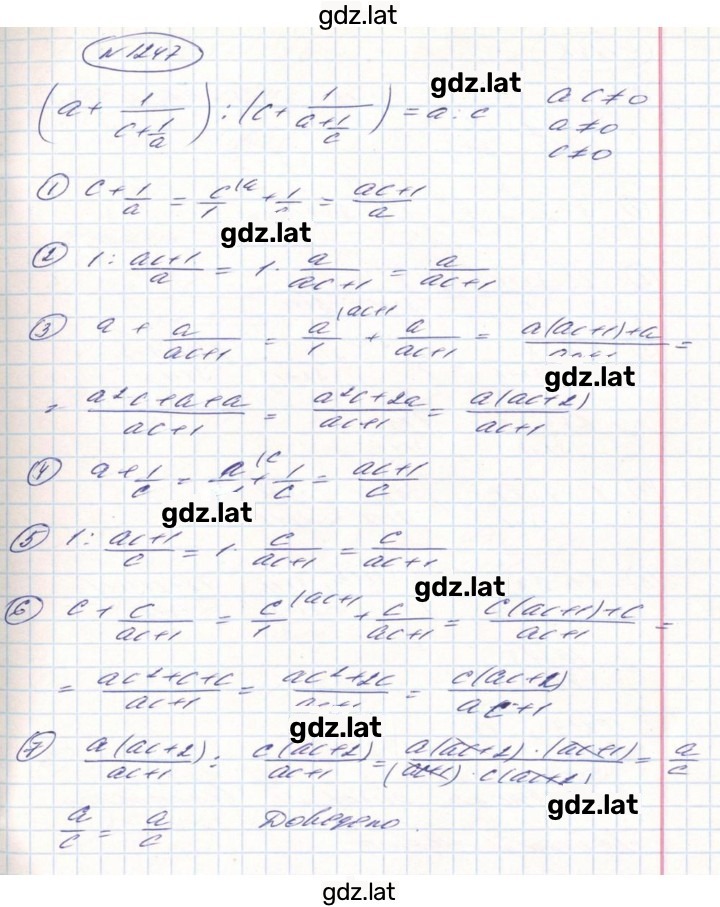 gdz.lat
№1247
gdz.lat
(a + 1/(c + 1/a)) : (c + 1/(a + 1/c)) = a : c
ac≠0
a≠0
c≠0
① c + 1/a = c/1 |a + 1/ = (ac+1)/a
gdz.lat
② 1 : (ac+1)/a = 1 · a/(ac+1) = a/(ac+1)
③ a + a/(ac+1) = a/1 |ac+1 + a/(ac+1) = (a(ac+1)+a)/ =
gdz.lat
= (a²c+a+a)/(ac+1) = (a²c+2a)/(ac+1) = a(ac+2)/(ac+1)
④ a + 1/c = a/1 |c + 1/c = (ac+1)/c
gdz.lat
⑤ 1 : (ac+1)/c = 1 · c/(ac+1) = c/(ac+1)
gdz.lat
⑥ c + c/(ac+1) = c/1 |ac+1 + c/(ac+1) = (c(ac+1)+c)/(ac+1) =
= (ac²+c+c)/(ac+1) = (ac²+2c)/ = c(ac+2)/(ac+1)
gdz.lat
⑦ a(ac+2)/(ac+1) : c(ac+2)/(ac+1) = (a(ac+2)·(ac+1))/((ac+1)·c(ac+2)) = a/c
gdz.lat
a/c = a/c Доведено.
gdz.lat